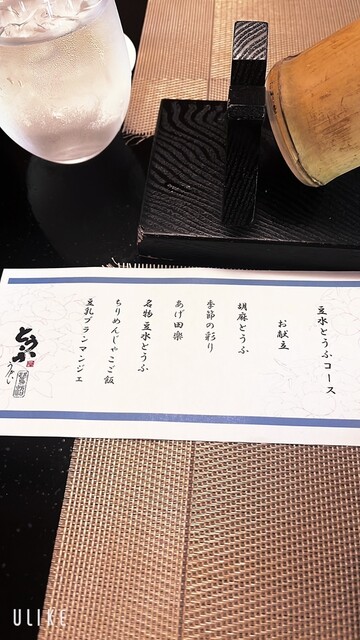 豆水とうふコース
お献立
胡麻とうふ
季節の彩り
あげ田楽
名物豆水とうふ
ちりめんじゃこご飯
豆乳ブランマンジェ
とうふ
うかい
ULIKE